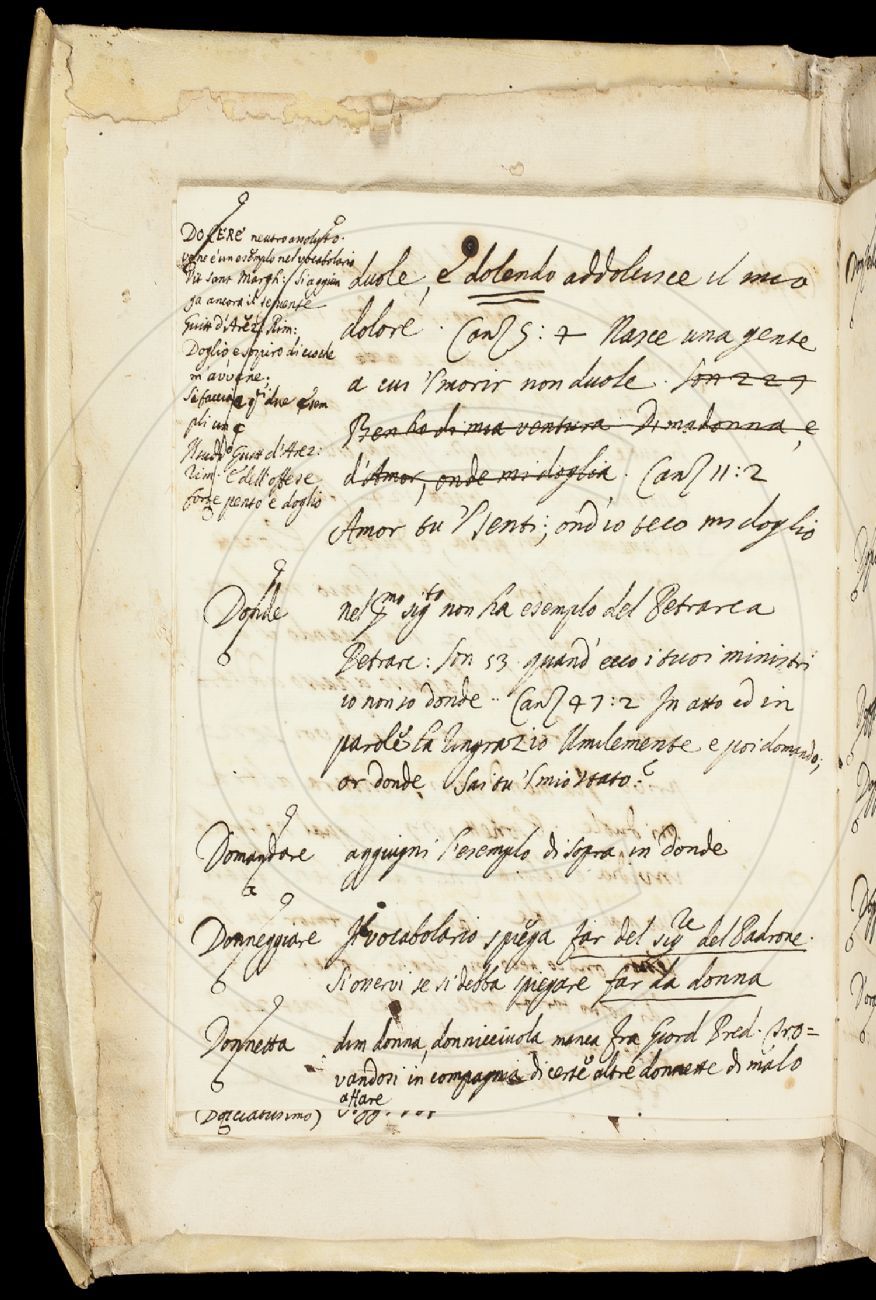 DOLERE neutro assoluto.
vene è un esemplo nel vocabolario
Vit sant Margh:/ Si aggiun
ga ancora il seguente
Guitt d'Arez Rim:
Doglio, e sospiro di ciò che
m'avvene;
Si faccia di qti due esem
pli un §
Guitt d'Arez:
Rim. E dell'offese
forte pento e doglio
duole, e dolendo addolcisce il mio
dolore. Canz 5: 4 Nasce una gente
a cui 'l morir non duole. Son 227
Ben ho di mia ventura Di madonna, e
d'Amor, onde mi doglia. Canz 11:2
Amor tu 'l senti, ond'io teco mi doglio
Donde nel pmo sigto non ha esemplo del Petrarca
Petrarc: Son 53 quand' ecco i tuoi ministri
io non so donde.. Canz 47:2 In atto ed in
parole la ringrazio Umilemente e poi domando;
or donde Sai tu 'l mio stato?
Domandare aggiugni l'esemplo di sopra in donde
Donneggiare Il vocabolario spiega far del sigre del Padrone.
Si osservi se si debba spiegare far da donna
Donnetta dim donna, donnicciuola manca fra Giord Pred. Tro=
vandosi in compagnia di certe altre donnette di malo
affare
(Dolciatissimo)